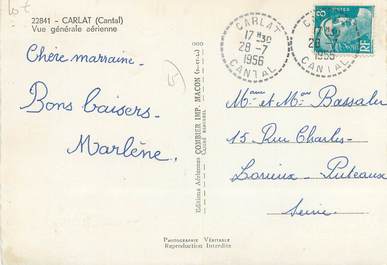 Lot
22841 - CARLAT (Cantal)
Vue générale aérienne
CARLAT
17 H 30
28 - 7
1956
CANTAL
Chère marraine -
Bons baisers -
Marlène.
Editions Aériennes COMBIER IMP. MACON
Mme et Mr Bassaler
15 Rue Charles-
Lorieux - Puteaux
Seine -
PHOTOGRAPHIE VÉRITABLE
Reproduction Interdite